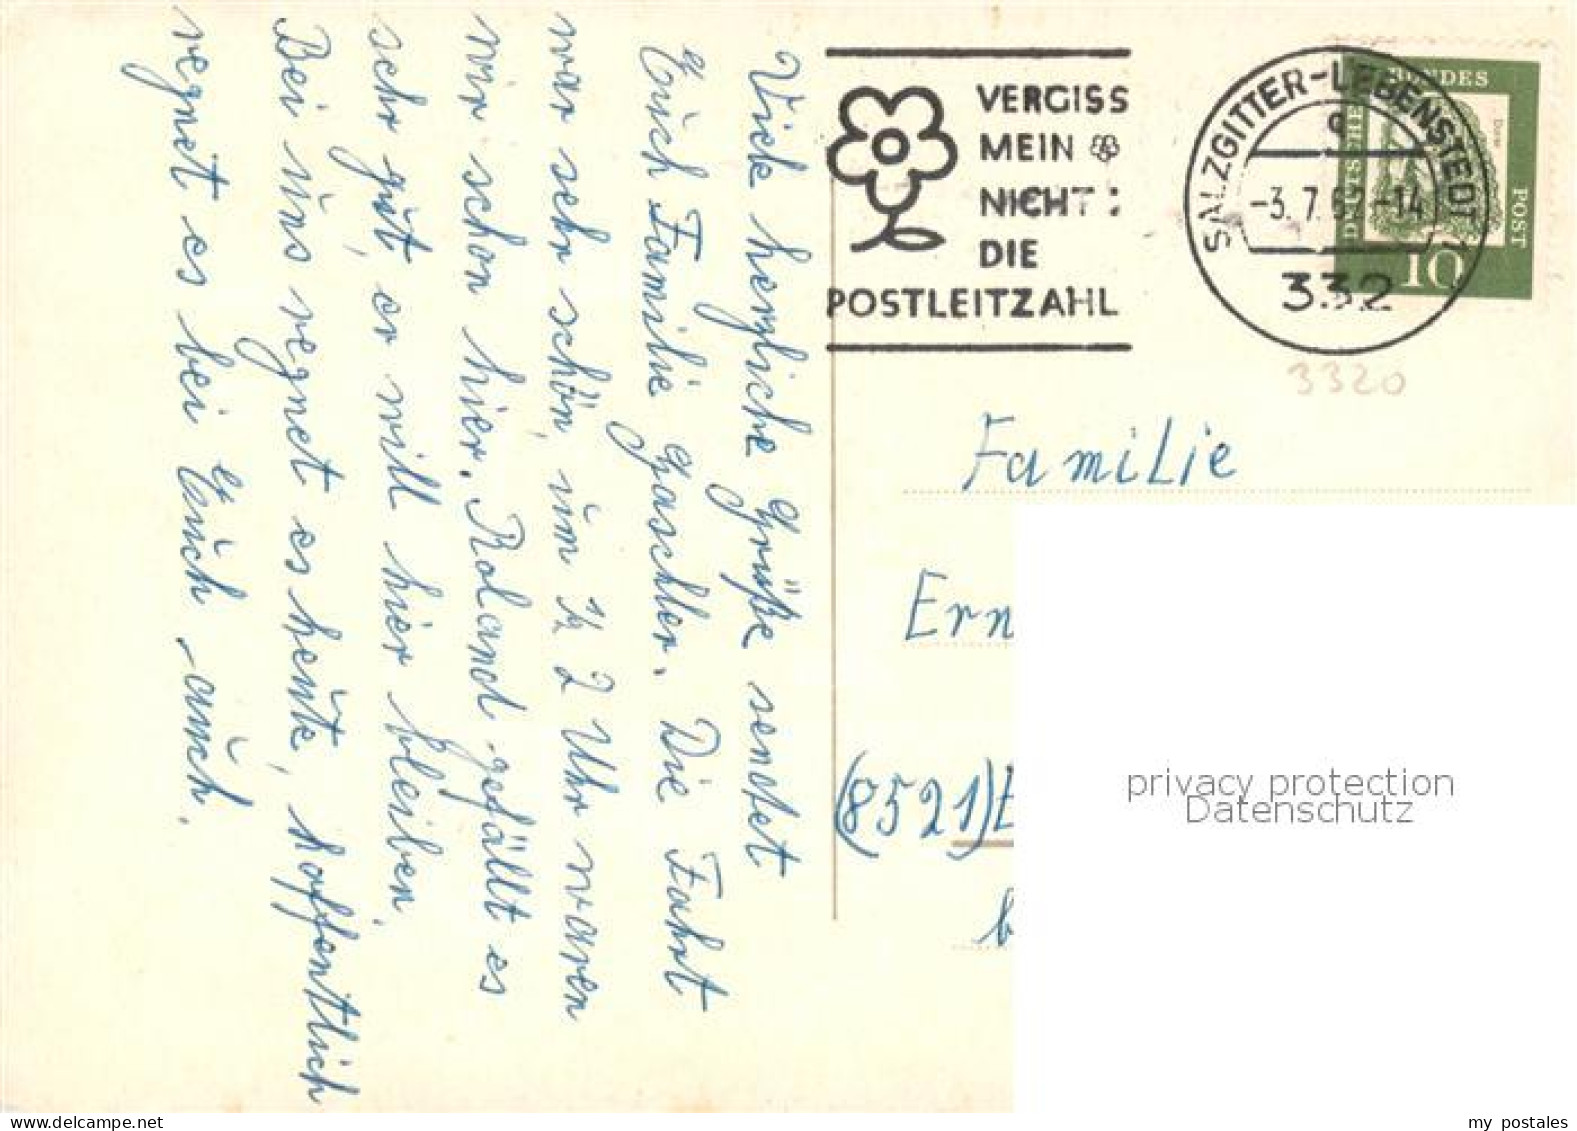 Viele herzliche Grüße sendet
Euch Familie Gaschler. Die Fahrt
war sehr schön, um ½ 2 Uhr waren
wir schon hier. Roland gefällt es
sehr gut, er will hier bleiben.
Bei uns regnet es heute, hoffentlich
regnet es bei Euch auch.
VERGISS
MEIN
NICHT:
DIE
POSTLEITZAHL
SALZGITTER-LEBENSTEDT 1
-3. 7. 62-14
332
DEUTSCHE
BUNDES
POST
10
3320
Familie
Ern
(8521) E
b
privacy protection
Datenschutz
my postales